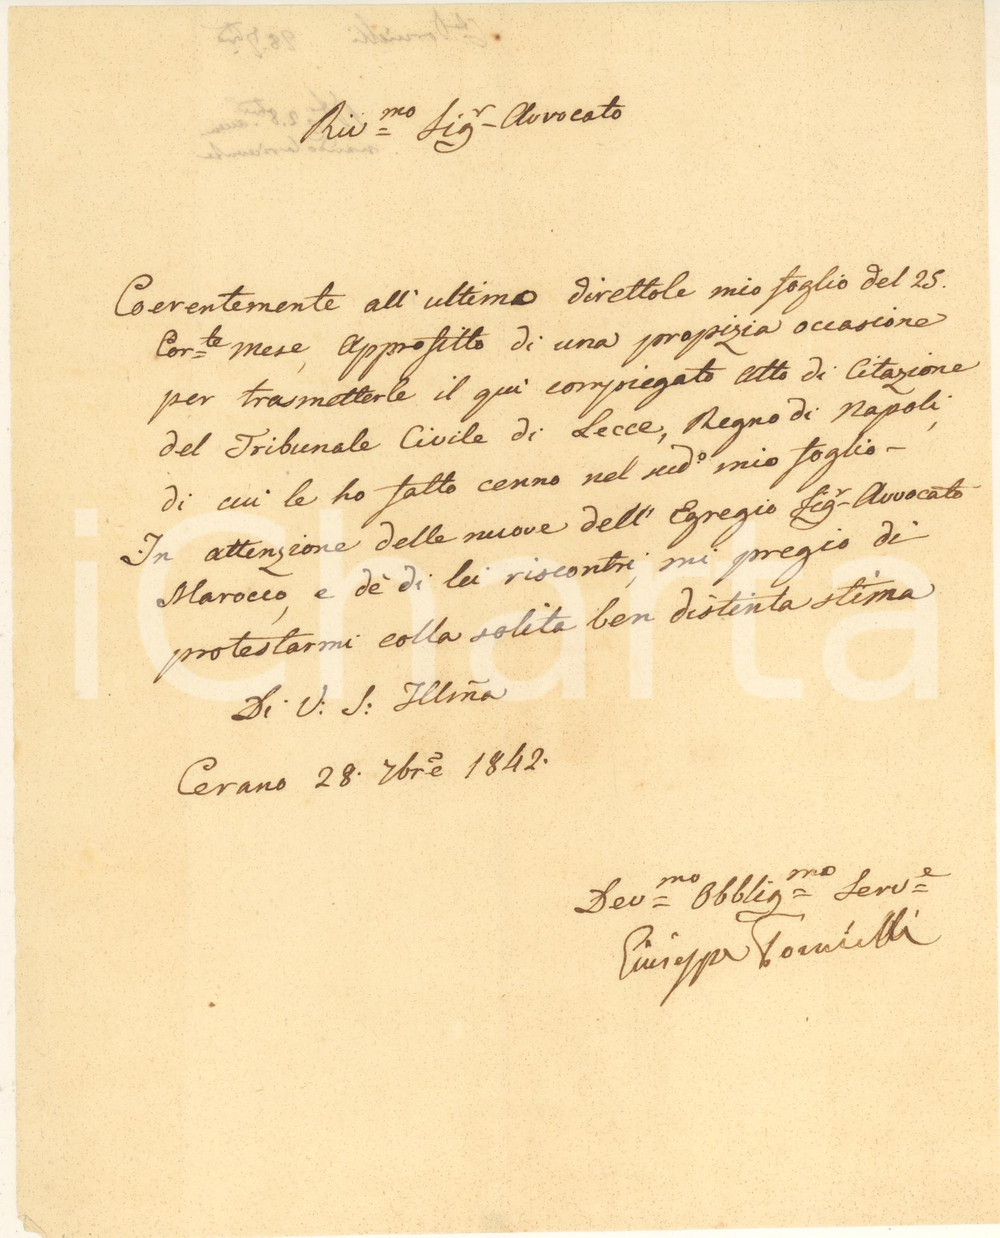 Riv.mo Sigr Avvocato
Coerentemente all'ultimo direttole mio foglio del 25.
Cor.te mese, approfitto di una propizia occasione
per trasmetterle il quì compiegato atto di Citazione
del Tribunale Civile di Lecce, Regno di Napoli,
di cui le ho fatto cenno nel sudo mio foglio-
In attenzione delle nuove dell' Egregio Sigr Avvocato
Marocco, e dè di lei riscontri, mi pregio di
protestarmi colla solita ben distinta stima
Di V: S: Illma
Cerano 28. 7bre 1842.
Dev.mo Obblig.mo Serv.e
Giuseppe Tornielli
iCharta